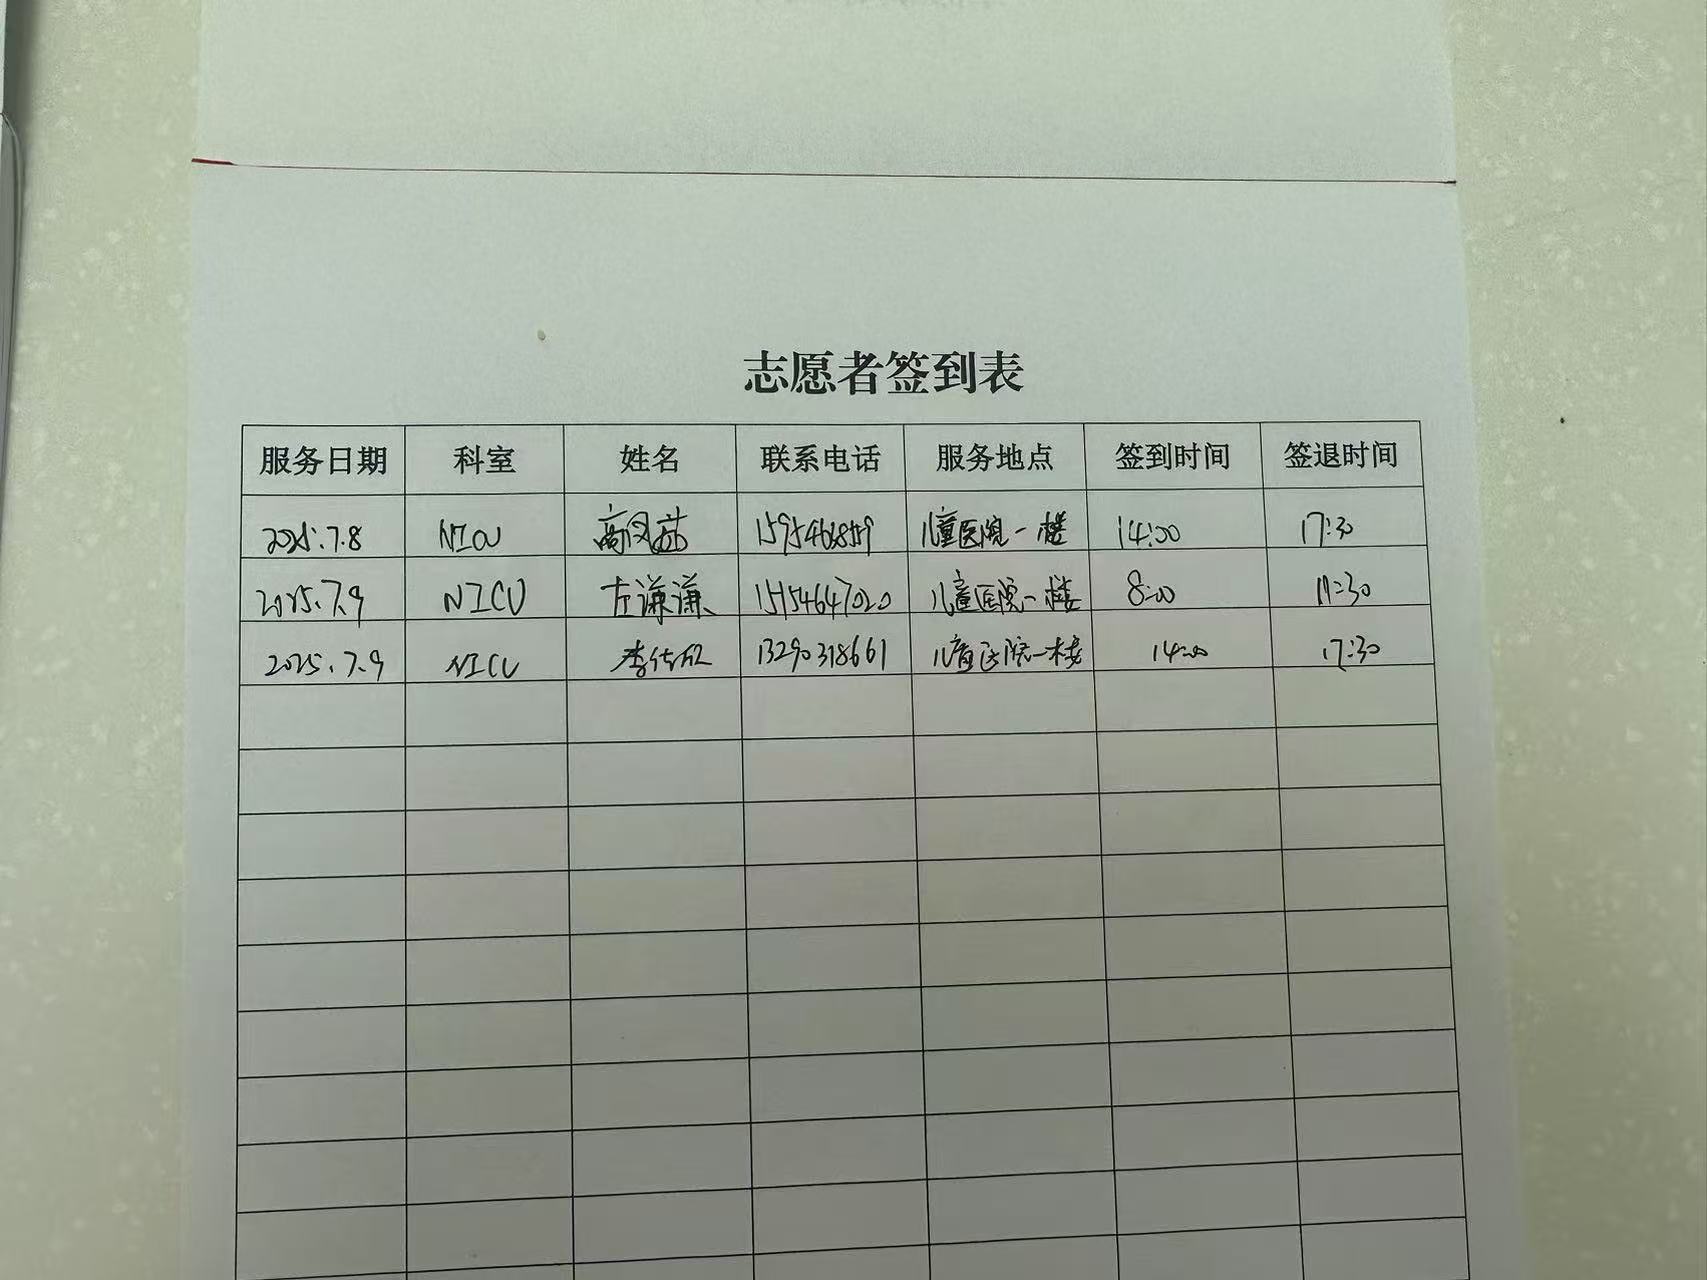 志愿者签到表
服务日期 科室 姓名 联系电话 服务地点 签到时间 签退时间
2025.7.8 NICU 高凤茹 儿童医院一楼 14:00 17:30
2025.7.9 NICU 左谦谦 15154647020 儿童医院一楼 8:00 11:30
2025.7.9 NICU 13290318661 儿童医院一楼 14:00 17:30